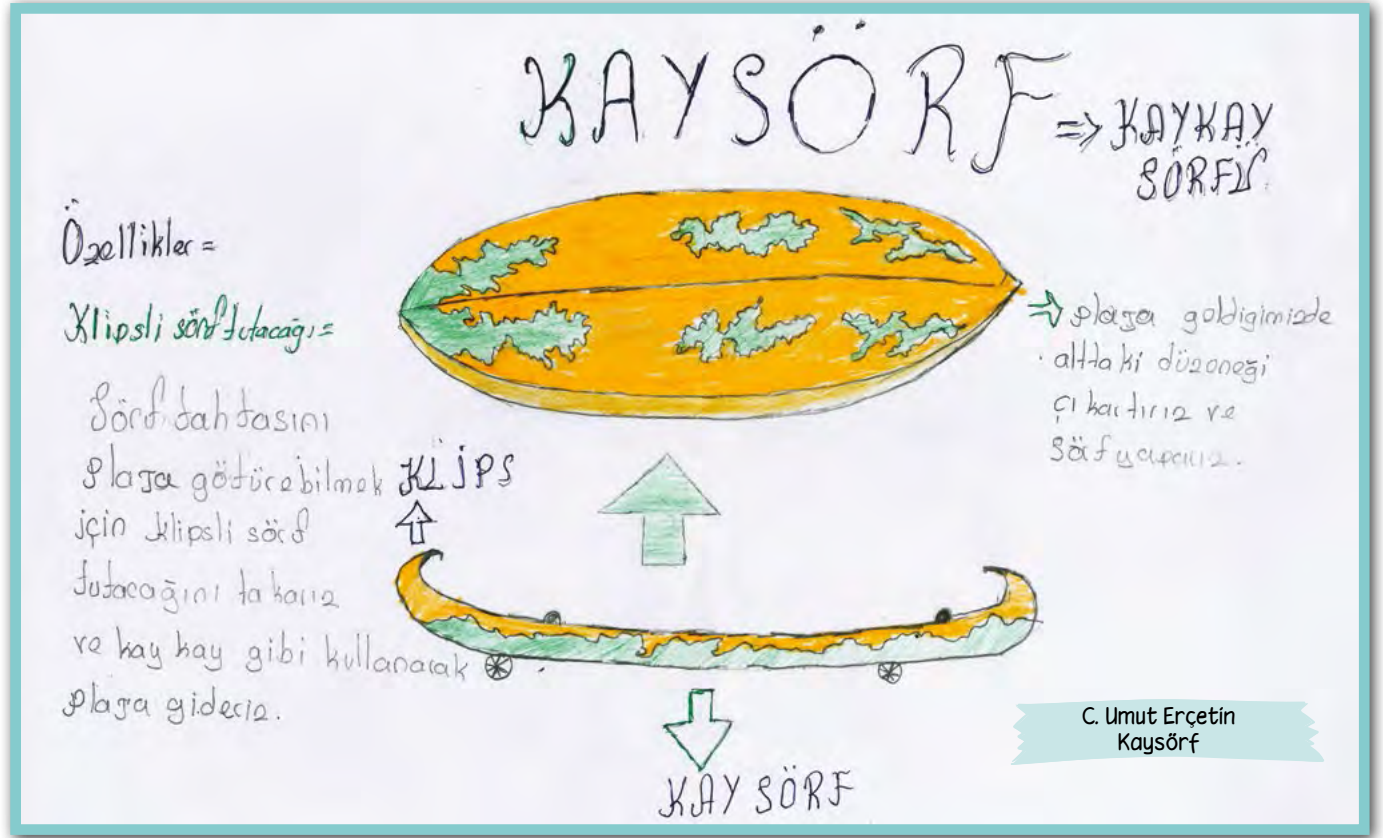 KAYSÖRF
=> KAYKAY
SÖRFÜ
Özellikler =
Klipsli sörf tutacağı =
Sörf tahtasını
plaja götürebilmek
için klipsli sörf
tutacağını takarız
ve kay kay gibi kullanarak
plaja gideriz.
KLİPS
plaja geldigimizde
alttaki düzeneği
çıkartırız ve
Sörf yaparız.
KAYSÖRF
C. Umut Erçetin
Kaysőrf